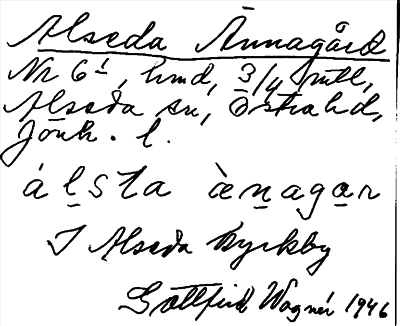 Alseda Ännagård
Nr 6¹, hmd, 3/4 mtl,
Alseda sn, Östra hd,
Jönk. l.
álsta ànagar
I Alseda kyrkby
Gottfrid Wagnér 1946